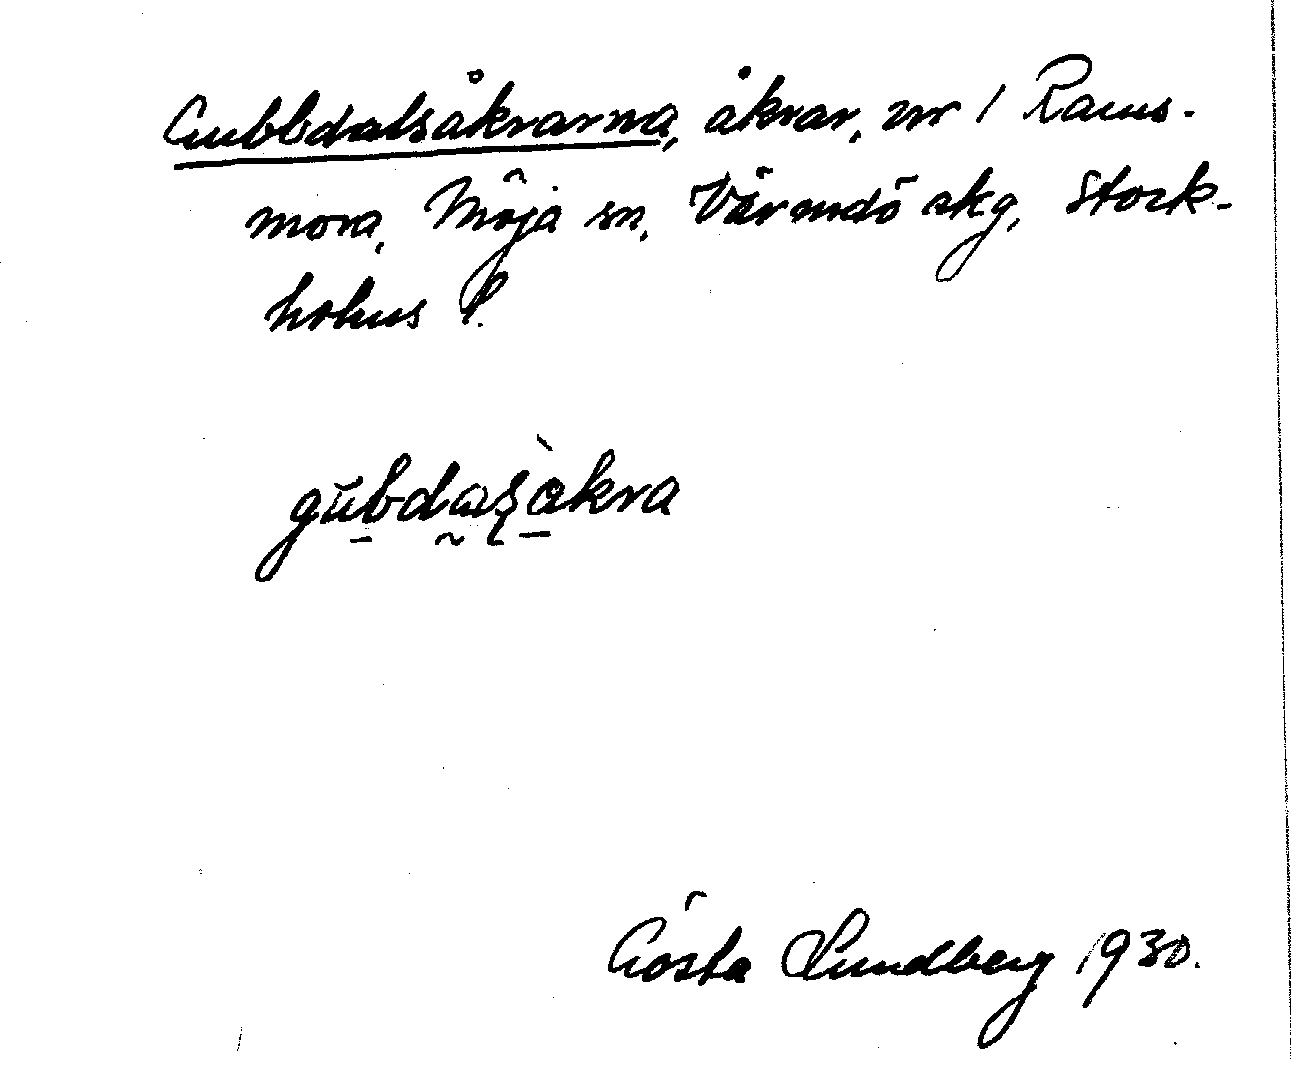 Gubbdalsåkrarna, åkrar, nr 1 Rams-
mora, Möja sn, Värmdö skg, Stock-
holms l.
gùbdasàkra
Gösta Lundberg 1930.